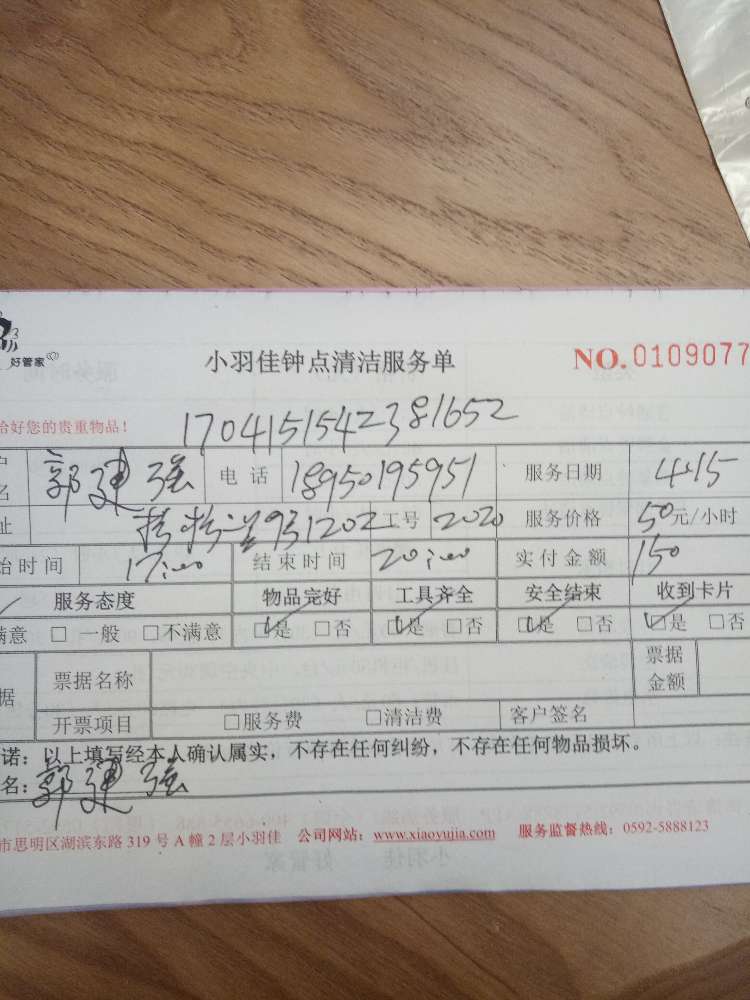 好管家
小羽佳钟点清洁服务单 NO.0109077
恰好您的贵重物品！
170415154238 1652
名 郭建强 电话 18950195951 服务日期 4.15
址 931202 工号 2020 服务价格 50元/小时
始时间 17:00 结束时间 20:00 实付金额 150
服务态度 物品完好 工具齐全 安全结束 收到卡片
满意 □一般 □不满意 □是 □否 □是 □否 □是 □否 □是 □否
据 票据名称 票据金额
开票项目 □服务费 □清洁费 客户签名
诺：以上填写经本人确认属实，不存在任何纠纷，不存在任何物品损坏。
名：郭建强
市思明区湖滨东路 319 号 A 幢 2 层小羽佳 公司网站：www.xiaoyujia.com 服务监督热线：0592-5888123